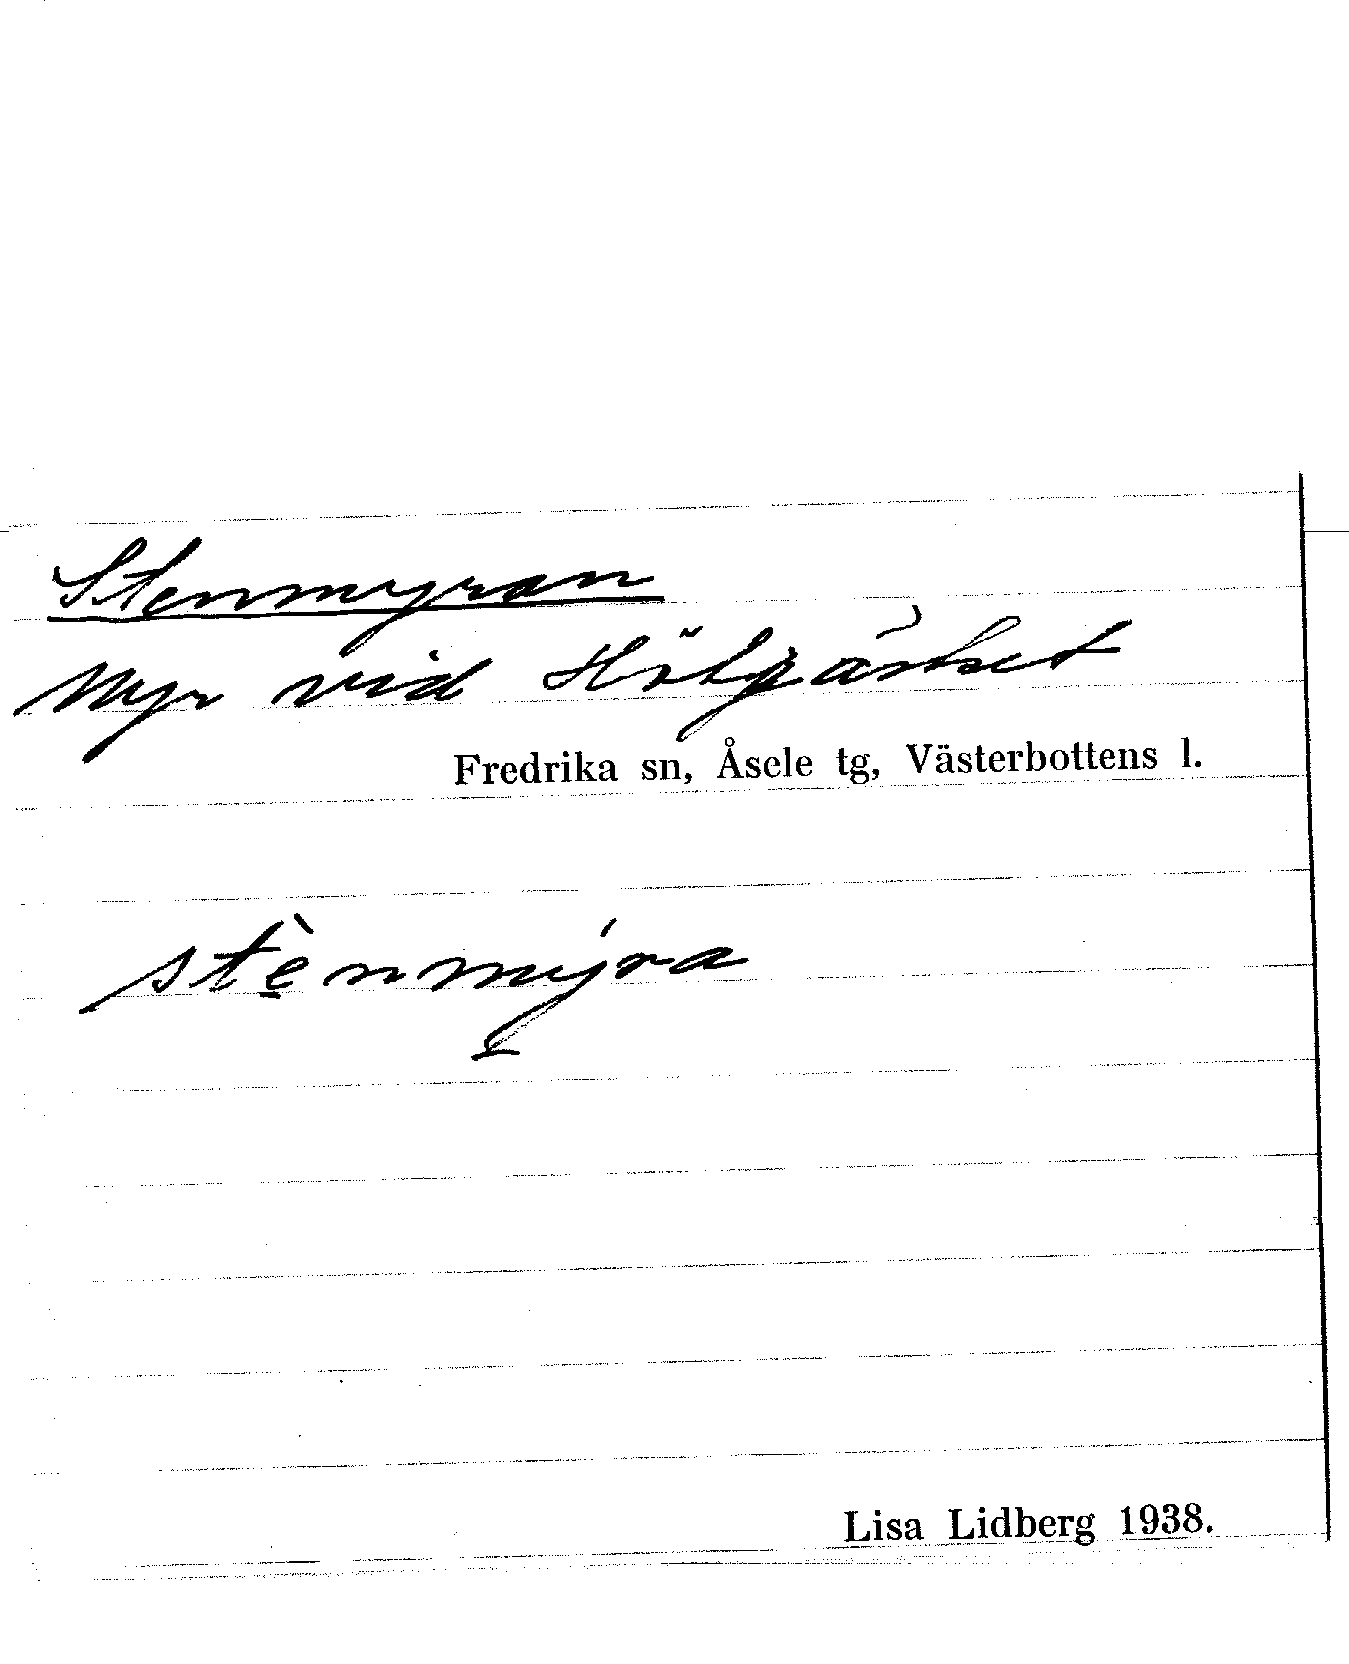 Stenmyran
Myr vid
Fredrika sn, Åsele tg, Västerbottens l.
stènmýra
Lisa Lidberg 1938.